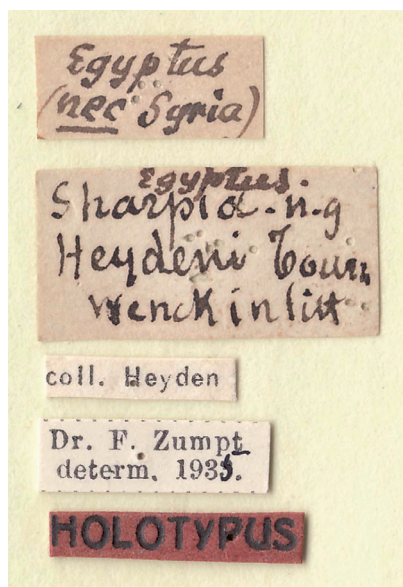 Egyptus
(nec Syria)
Egyptus.
Sharpia. n. g
Heydeni Tourn
Wenck in litt
coll. Heyden
Dr. F. Zumpt
determ. 1935.
HOLOTYPUS